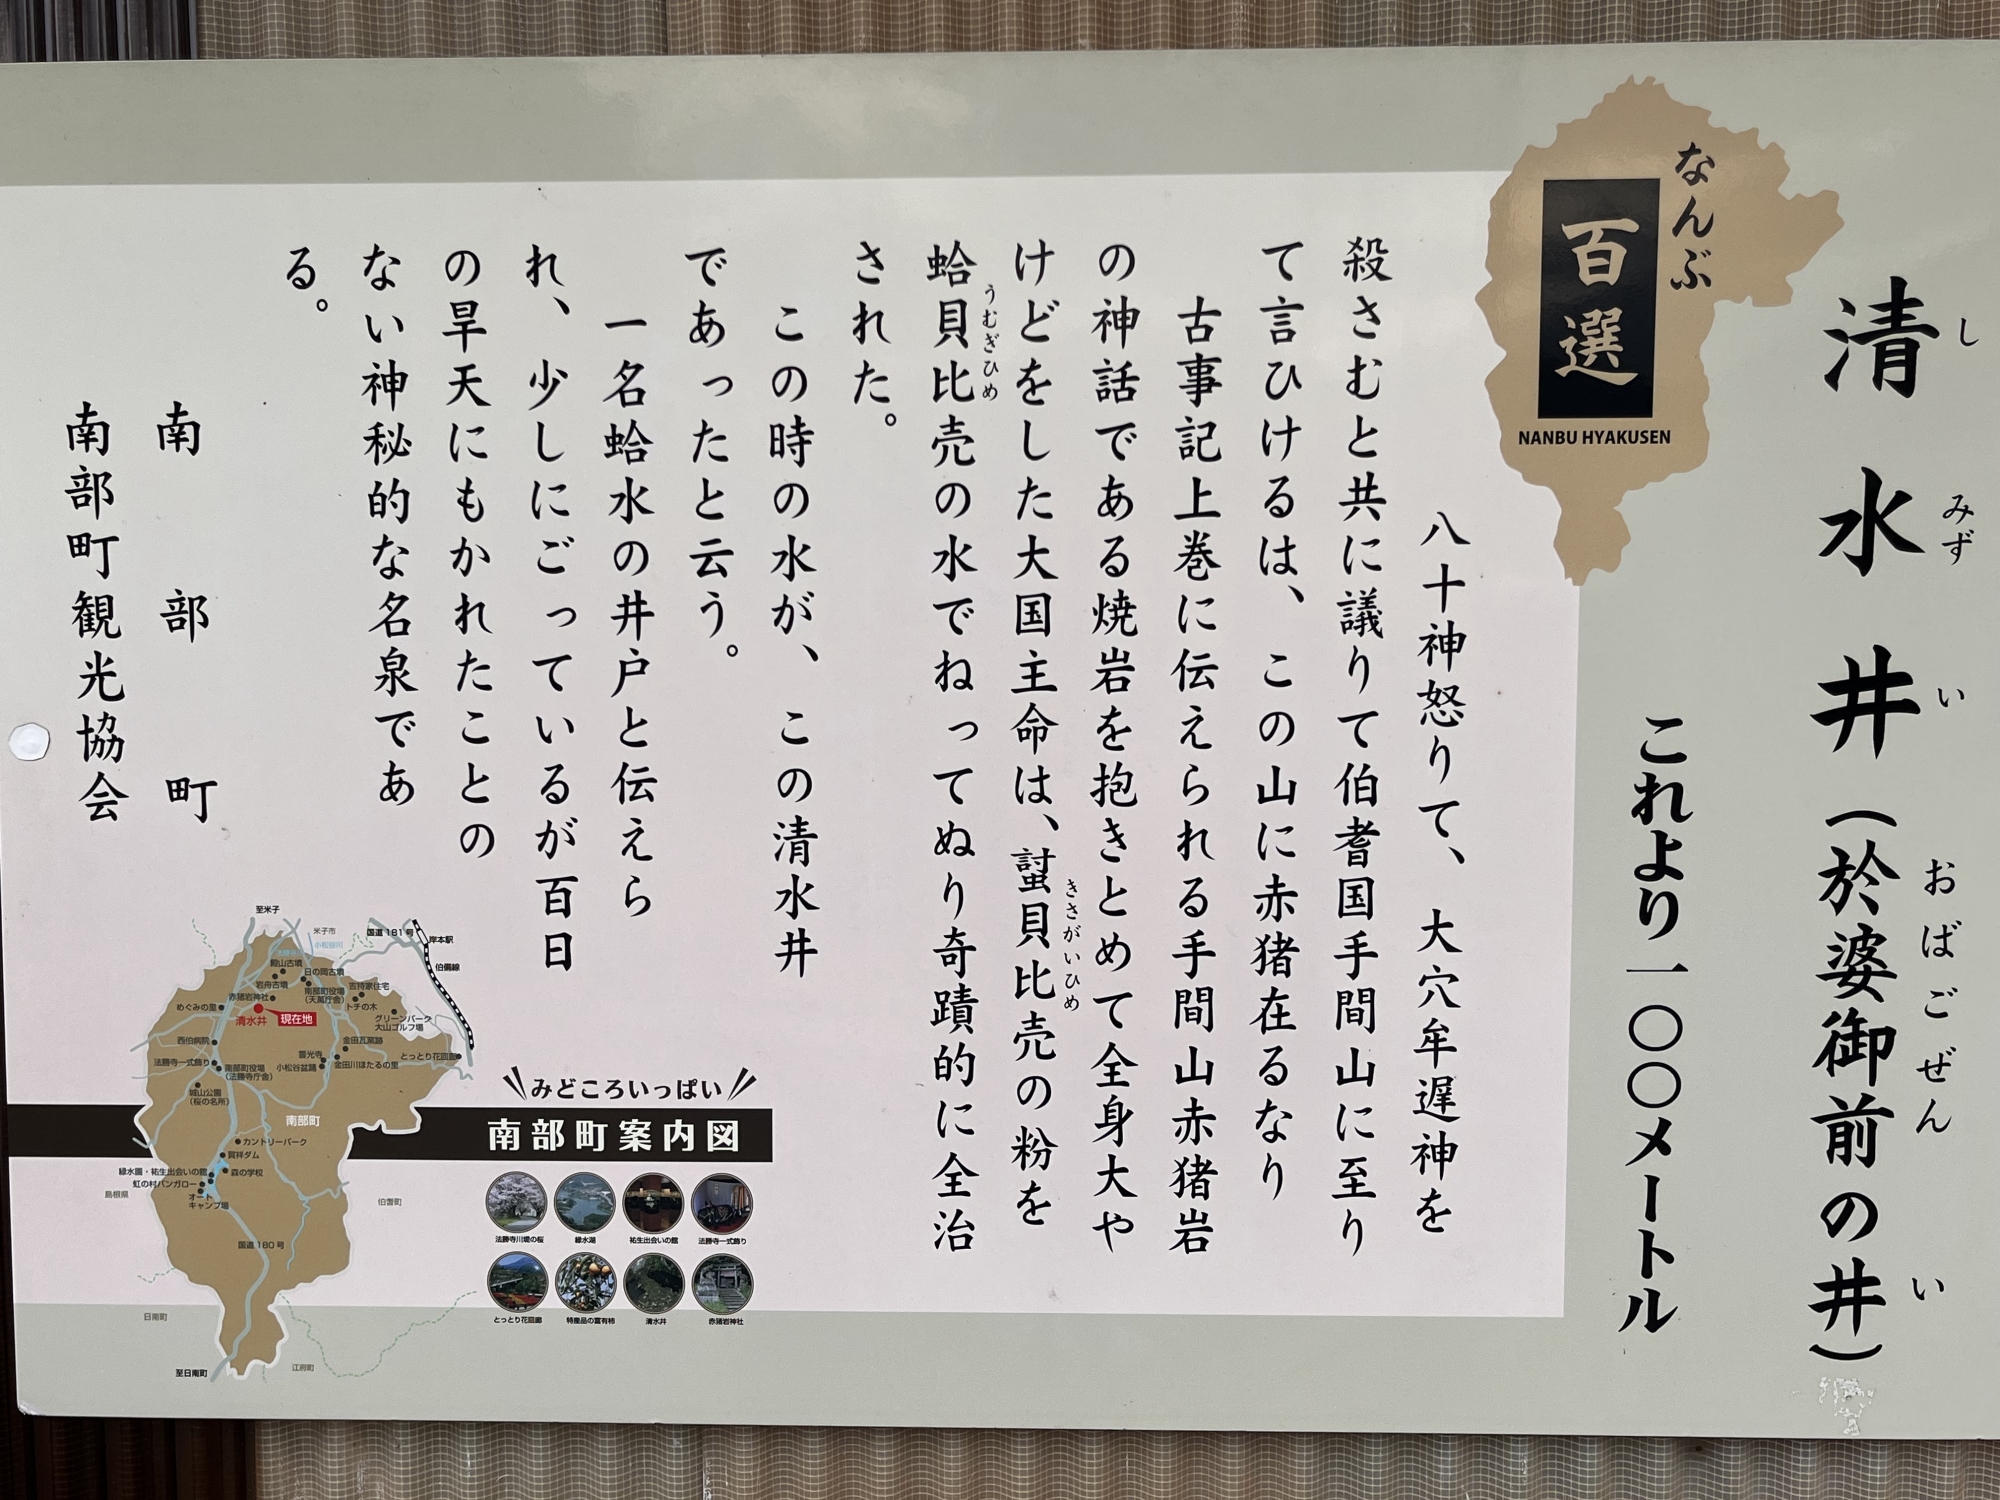 清水井（於婆御前の井）
しみずい
おばごぜん
い
これより一〇〇メートル
なんぶ
百選
NANBU HYAKUSEN
八十神怒りて、大穴牟遅神を
殺さむと共に議りて伯耆国手間山に至り
て言ひけるは、この山に赤猪在るなり
古事記上巻に伝えられる手間山赤猪岩
の神話である焼岩を抱きとめて全身大や
けどをした大国主命は、蚶貝比売の粉を
きさがいひめ
蛤貝比売の水でねってぬり奇蹟的に全治
うむぎひめ
された。
この時の水が、この清水井
であったと云う。
一名蛤水の井戸と伝えら
れ、少しにごっているが百日
の旱天にもかれたことの
ない神秘的な名泉であ
る。
南部町
南部町観光協会
みどころいっぱい
南部町案内図
法勝寺川堤の桜
緑水湖
祐生出会いの館
法勝寺一式飾り
とっとり花回廊
特産品の富有柿
清水井
赤猪岩神社
至米子
米子市
小松谷川
国道181号
岸本駅
伯備線
殿山古墳
日の岡古墳
岩舟古墳
南部町役場
(天萬庁舎)
吉持家住宅
赤猪岩神社
トチの木
めぐみの里
清水井
現在地
グリーンパーク
大山ゴルフ場
西伯病院
金田瓦窯跡
法勝寺一式飾り
雲光寺
とっとり花回廊
南部町役場
(法勝寺庁舎)
小松谷盆踊
金田川ほたるの里
城山公園
(桜の名所)
南部町
カントリーパーク
賀祥ダム
緑水園・祐生出会いの館
森の学校
虹の村バンガロー
オート
キャンプ場
島根県
伯耆町
国道180号
日南町
江府町
至日南町